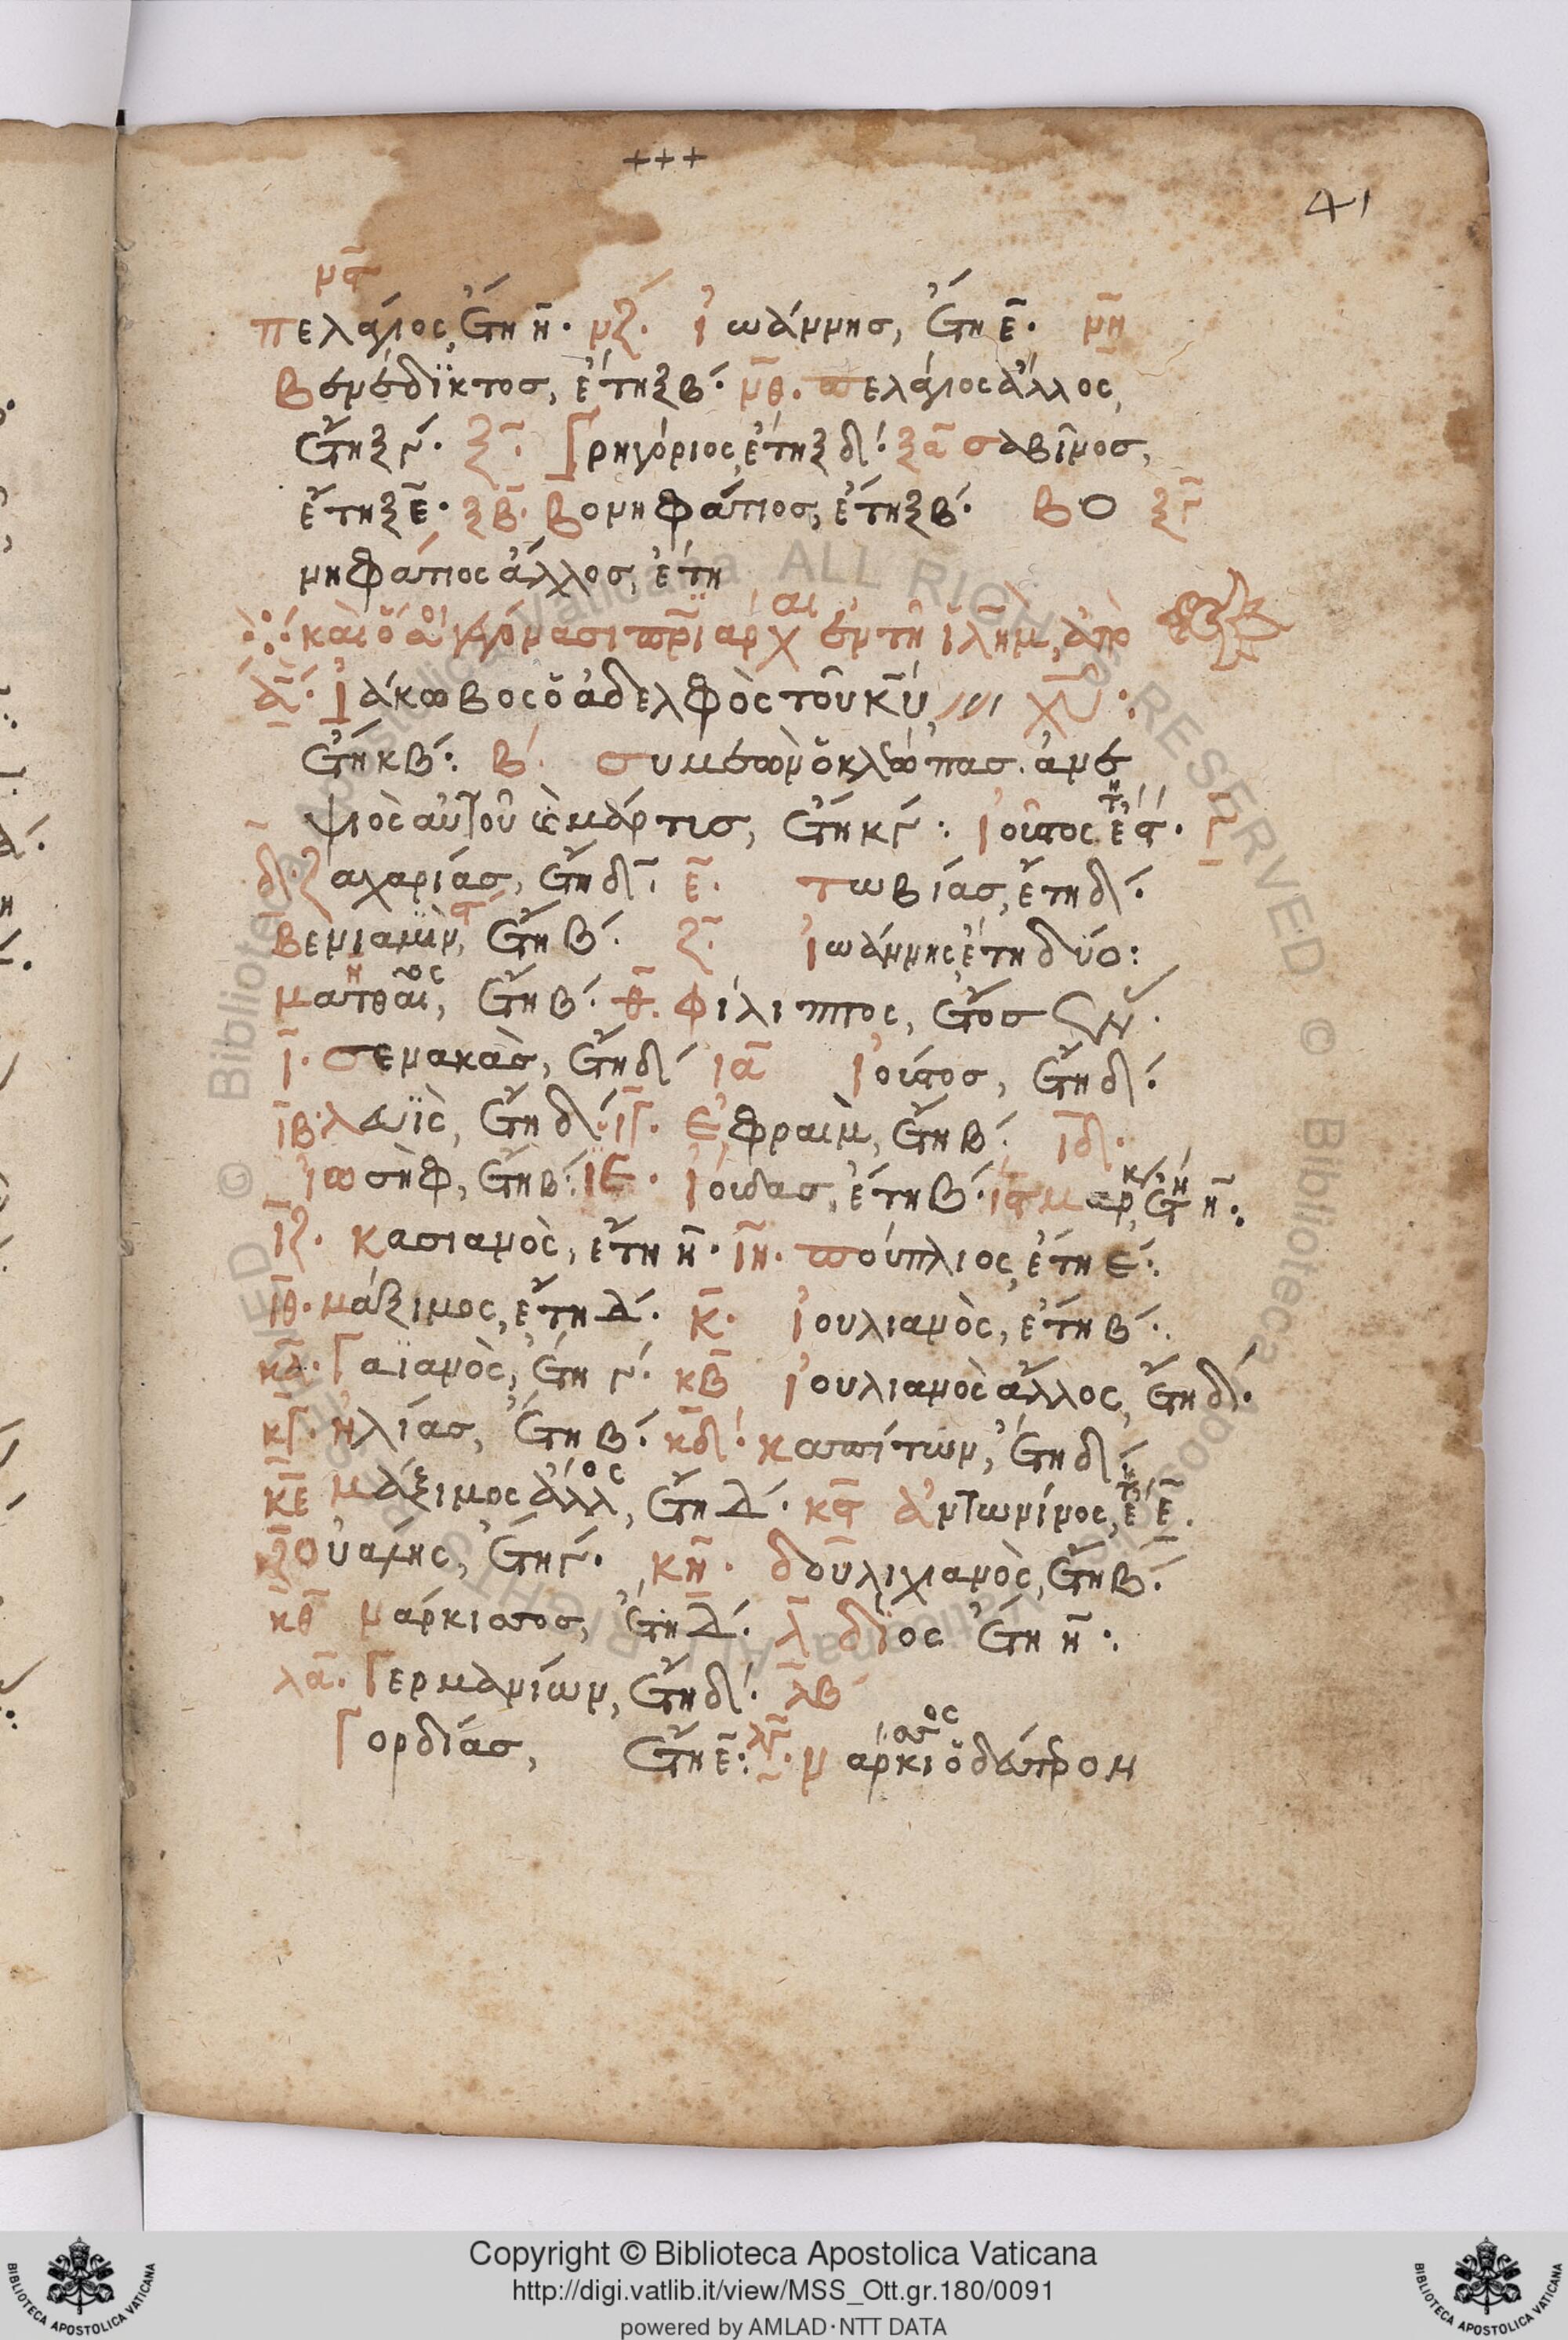 +++
41
μϛ
πελάγιος, ἔτη η. μζ. ἰωάννησ, ἔτη ε. μη
βενέδϊκτοσ, ἔτη ξβ. μθ. πελάγιος ἄλλος,
ἔτη ξγ. ξ. Γρηγόριος, ἔτη ξδ. ξα σαβῖνοσ,
ἔτη ξε. ξβ. βονηφάτιοσ, ἔτη ξβ. βο ξγ
νηφάτιος ἄλλοσ, ἔτη
ἐν τῆ ἱλῆμ, ἀπὸ
α. Ἰάκωβος ὁ ἀδελφὸς τοῦ κυ, χυ:
ἔτη κβ: β. συμεὼν ὁ κλωόπασ. ἀνε
ψιὸς αὐτοῦ μάρτισ, ἔτη κγ: ἰοῦστος ἔτη ϛ. γ
δ. ζαχαρίασ, ἔτη δ. ε. τωβίασ, ἔτη δ.
βενιαμϊν, ϛ ἔτη β. ζ. ἰωάννης ἔτη δύο:
ματθαῖος, η ἔτη β. θ. φίλιππος, ἔτοσ
ι. σενακὰσ, ἔτη δ ια ἰούστοσ, ἔτη δ.
ιβ. λευϊς, ἔτη δ. ιγ. ἐφραιμ, ἔτη β. ιδ.
ἰωσὴφ, ἔτη β. ιε. ἰούδασ, ἔτη β. ιϛ μάρκ, ἔτη η.
ιζ. κασιανὸς, ἔτη η. ιη. πούπλιος, ἔτη ε:
ιθ. μάξιμος, ἔτη δ. κ. ἰουλιανὸς, ἔτη β.
κα. Γαϊανὸς, ἔτη γ. κβ ἰουλιανὸς ἄλλος, ἔτη δ.
κγ. ἠλίασ, ἔτη β. κδ. καπίτων, ἔτη δ.
κε μάξιμος ἄλλος, ἔτη δ. κϛ ἀντωνίνος, ἔτη ε.
κζ οὐάλης, ἔτη γ. κη. δουλιχιανὸς, ἔτη β.
κθ μάρκισοσ, ἔτη δ. λ δῖος ἔτη η.
λα. Γερμανίων, ἔτη δ. λβ
Γορδίασ, ἔτη ε: λγ. μάρκισος ὁ δεύτρον
Copyright © Biblioteca Apostolica Vaticana
http://digi.vatlib.it/view/MSS_Ott.gr.180/0091
powered by AMLAD·NTT DATA